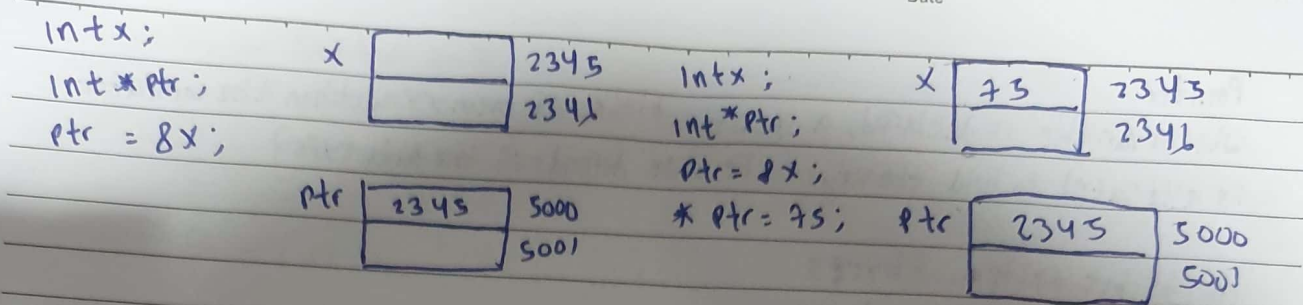 Int x;
Int * ptr;
ptr = &x;
x
2345
2346
ptr 2345 5000
5001
Int x;
Int * ptr;
ptr = &x;
* ptr = 75;
x 75 2345
2346
ptr 2345 5000
5001